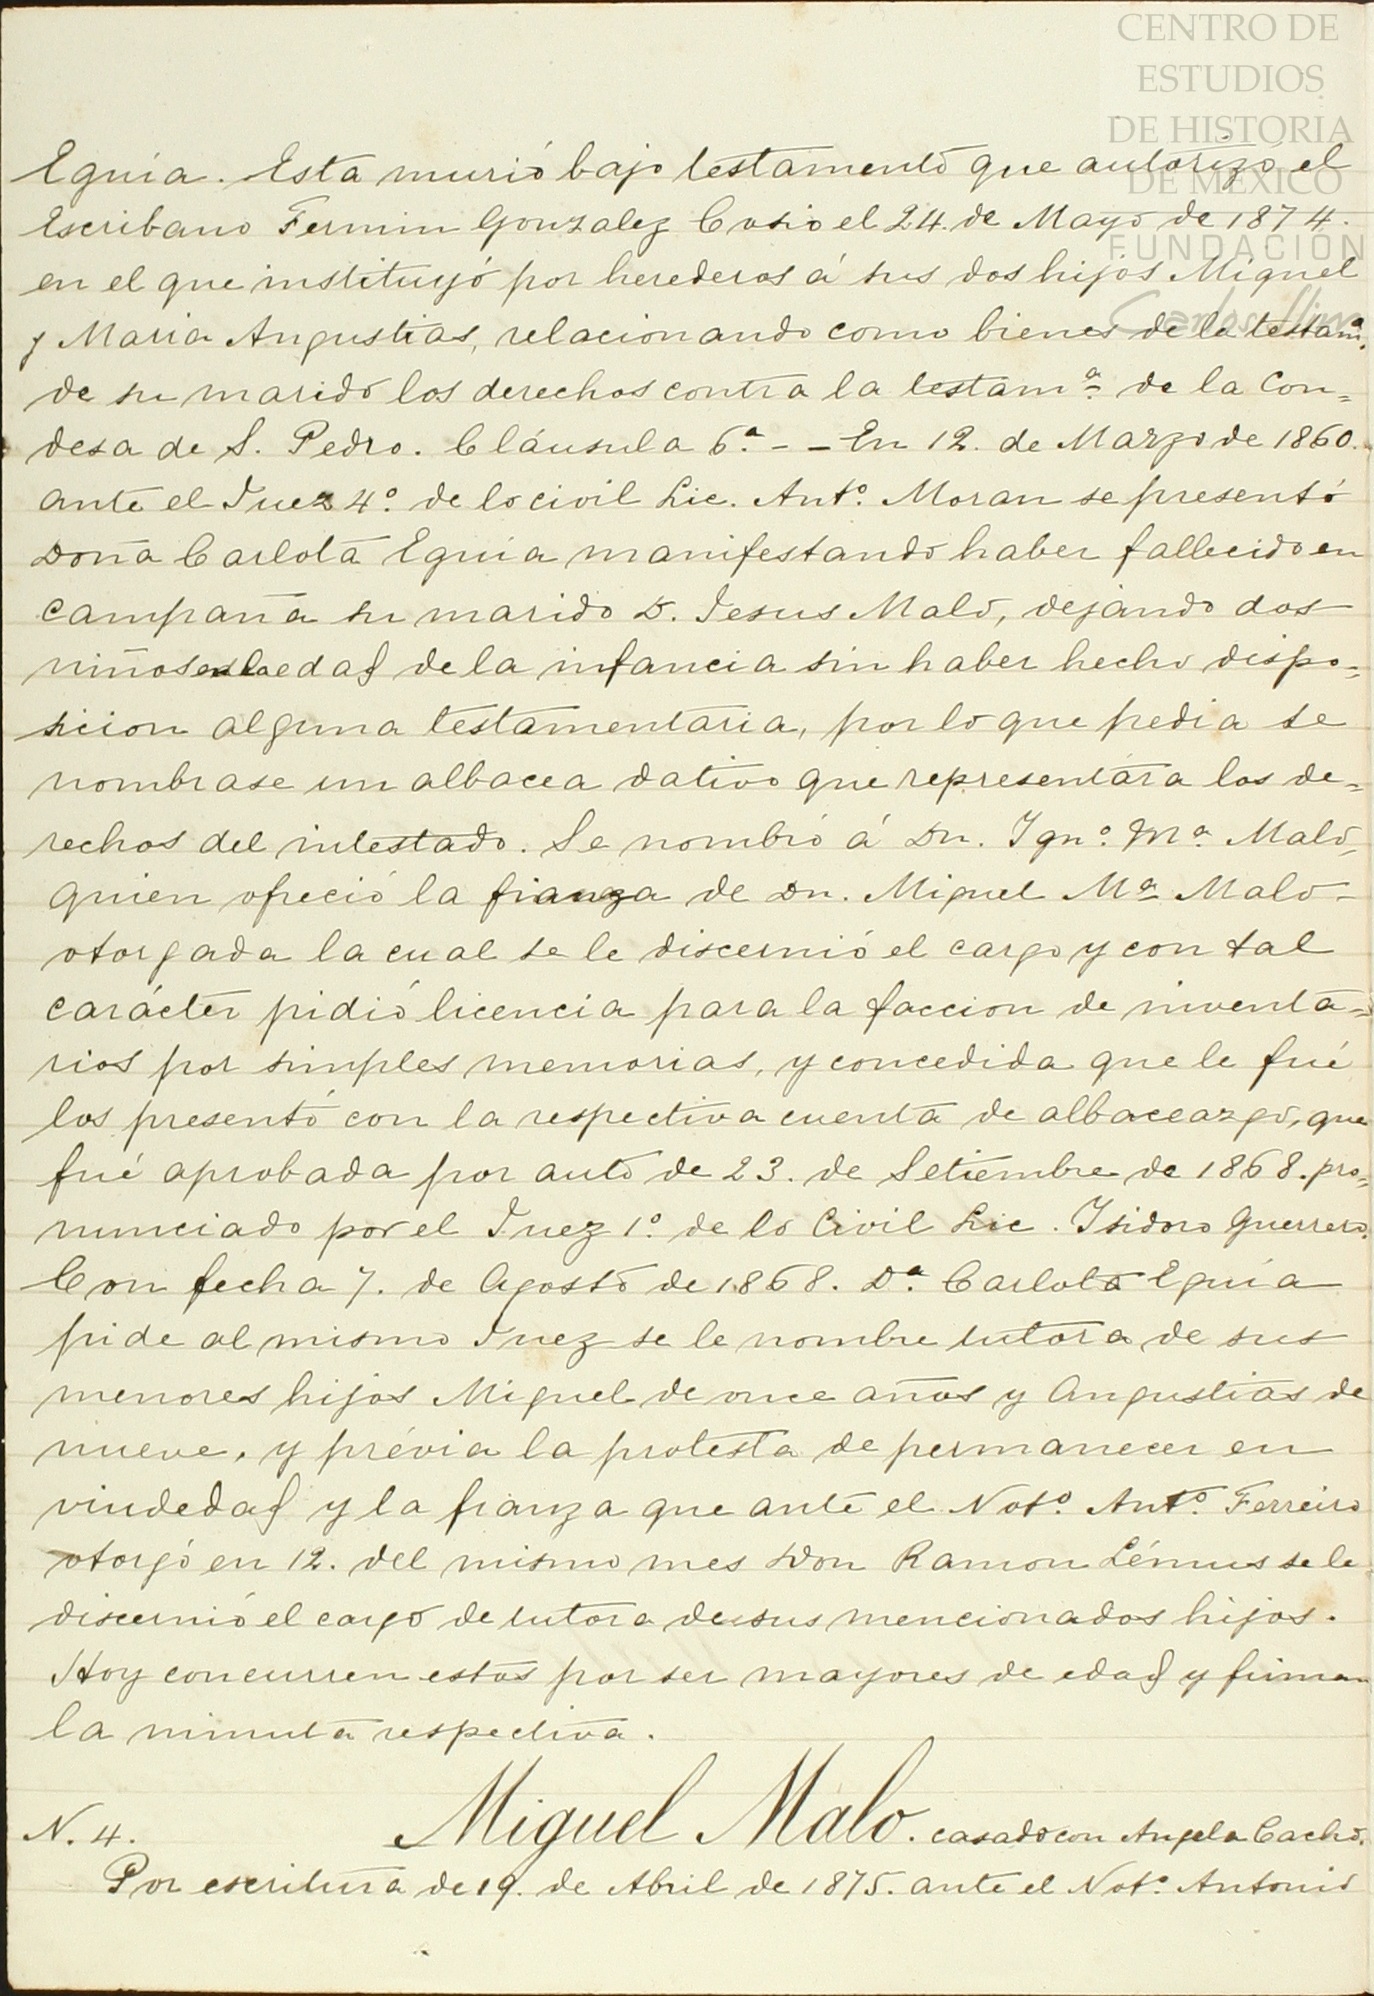 CENTRO DE
ESTUDIOS
DE HISTORIA
DE MÉXICO
FUNDACIÓN
Carlos Slim
Eguia. Esta murió bajo testamento que autorizó el
Escribano Fermin Gonzalez Cosio el 24. de Mayo de 1874.
en el que instituyó por herederos á sus dos hijos Miguel
y Maria Angustias, relacionando como bienes de la testamª.
de su marido los derechos contra la testamª de la Con=
desa de S. Pedro. Cláusula 6ª. - - En 12. de Marzo de 1860.
ante el Juez 4º. de lo civil Lic. Antº. Moran se presentó
Doña Carlota Eguia manifestando haber fallecido en
campaña su marido D. Jesus Malo, dejando dos
niños en la edad de la infancia sin haber hecho dispo=
sicion alguna testamentaria, por lo que pedia se
nombrase un albacea dativo que representára los de=
rechos del intestado. Se nombró á Dn. Ignº. Mª. Malo,
quien ofreció la fianza de Dn. Miguel Mª Malo=
otorgada la cual se le discernió el cargo y con tal
carácter pidió licencia para la faccion de inventa=
rios por simples memorias, y concedida que le fué
los presentó con la respectiva cuenta de albaceazgo, que
fué aprobada por auto de 23. de Setiembre de 1868. pro=
nunciado por el Juez 1º. de lo Civil Lic. Isidoro Guerrero.
Con fecha 7. de Agosto de 1868. Dª. Carlota Eguia
pide al mismo Juez se le nombre tutora de sus
menores hijos Miguel de once años y Angustias de
nueve, y prévia la protesta de permanecer en
viudedad y la fianza que ante el Notº. Antº. Ferreiro
otorgó en 12. del mismo mes Don Ramon Lémus se le
discernió el cargo de tutora de sus mencionados hijos.
Hoy concurren estos por ser mayores de edad y firman
la minuta respectiva.
Miguel Malo. casado con Angela Cacho.
N. 4.
Por escritura de 19. de Abril de 1875. ante el Notº. Antonio